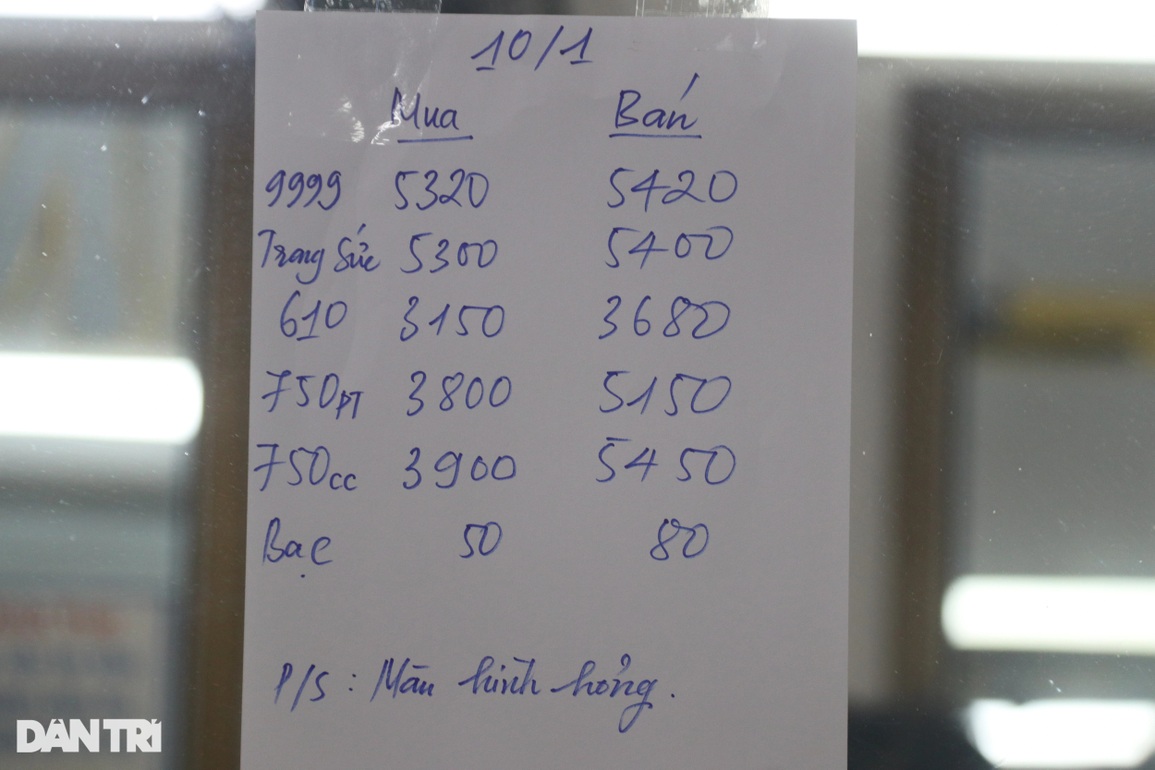 10/1
Mua Bán
9999 5320 5420
Trang Sức 5300 5400
610 3150 3680
750PT 3800 5150
750cc 3900 5450
Bạc 50 80
P/S: Màn hình hỏng.
DÂN TRÍ